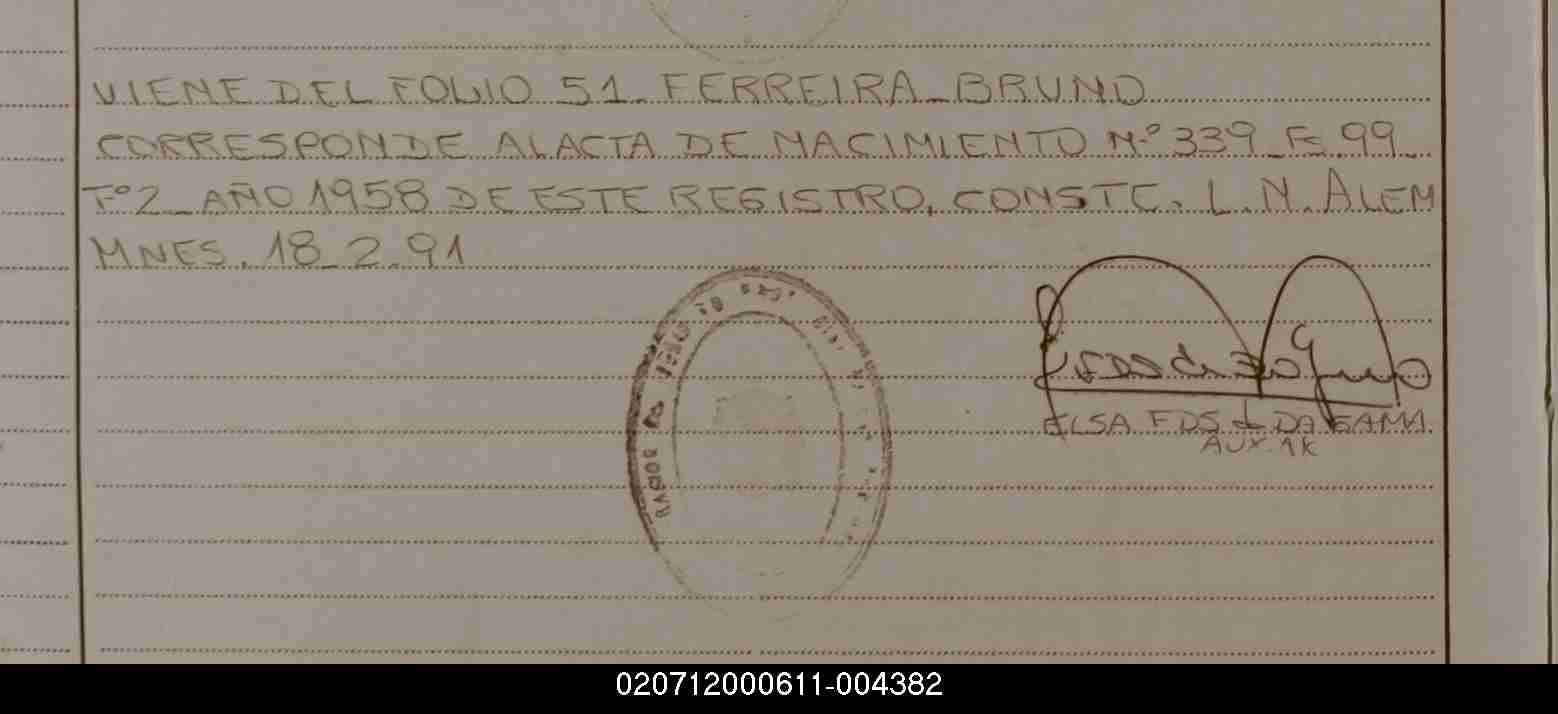 VIENE DEL FOLIO 51. FERREIRA_BRUNO
CORRESPONDE AL ACTA DE NACIMIENTO N.º 339_Fº 99
Tº 2_AÑO 1958 DE ESTE REGISTRO, CONSTE. L.N. ALEM
MNES. 18_2.91
ELSA F DS de DA GAMA
AUX. 1K
020712000611-004382